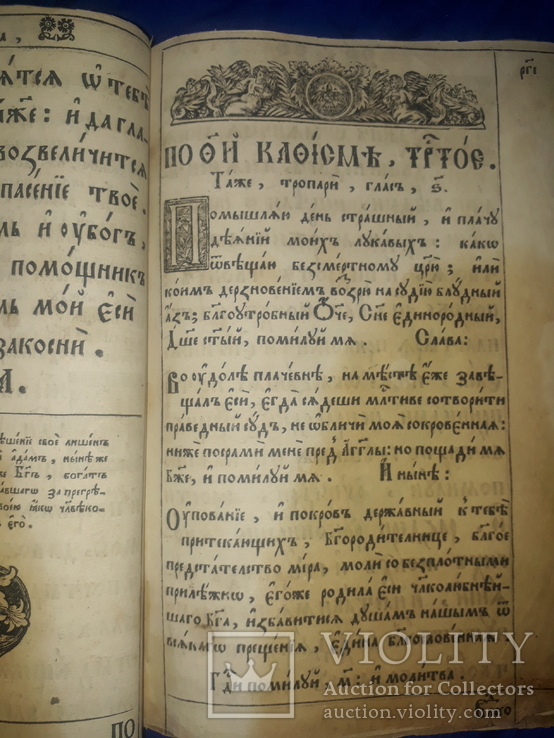 ѧ́тсѧ ѿ тебѣ̀
и да гла-
возвели́читсѧ
спасе́нїе твоѐ.
и ᲂу҆бо́гъ,
помо́щникъ
мо́й є҆сѝ
закоснѝ.
ПО Ѳ҃Й КАѲІ́СМѢ, ТРТ҃О́Е.
Та́же, тропарѝ, гла́съ, ѕ҃.
Помышлѧ́ю де́нь стра́шный, и҆ пла́чꙋ
дѣѧ́нїй мои́хъ лꙋка́выхъ: ка́кѡ
ѿвѣща́ю безсме́ртномꙋ цр҃ю̀; и҆лѝ
ко́имъ дерзнове́нїемъ воз̾рю̀ на сꙋдїю̀ блꙋ́дный
а҆́зъ; бл҃гоꙋтро́бный Ѻ҆́ч҃е, Сн҃е Є҆диноро́дный,
Дш҃е ст҃ы́й, поми́лꙋй мѧ̀. Сла́ва:
Во ᲂу҆до́лѣ плаче́внѣ, на мѣ́стѣ є҆́же завѣ-
ща́лъ є҆сѝ, є҆гда̀ сѧ́деши мл҃тиве сотвори́ти
пра́ведный сꙋ́дъ, не ѡ҆бличѝ моѧ̀ сокрове́ннаѧ:
нижѐ посрамѝ менѐ пред̾ А҆́гг҃лы: но пощади́ мѧ
Бж҃е, и҆ поми́лꙋй мѧ̀. И҆ ны́нѣ:
Оу҆пова́нїе, и҆ покро́въ держа́вный к̾ тебѣ̀
притека́ющихъ, Бг҃ороди́телнице, бл҃го́е
предста́телство мі́ра, молѝ со безпло́тными
прилѣ́жнѡ, є҆го́же родила̀ є҆сѝ чл҃колюби́вѣй-
шаго Бг҃а, и҆зба́витисѧ дꙋша́мъ на́шымъ ѿ
всѧ́кагѡ преще́нїѧ, є҆ди́на бл҃гослове́ннаѧ
Гд҃и поми́лꙋй, м҃: и҆ моли́тва.
VIOLITY
Auction for Collectors
auction.violity.com
ПО